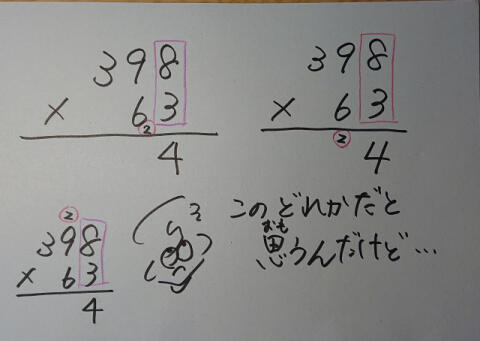 398
× 63
2
4
398
× 63
2
4
2
398
× 63
4
このどれかだと
おも
思うんだけど…